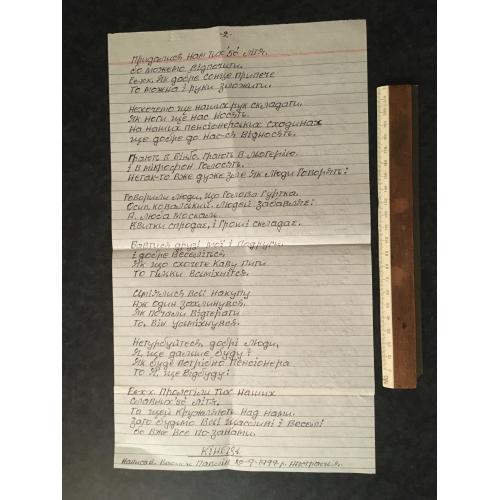 -2-
Придалися нам тих 50 літя.
бо можемо відпочити.
Ех-х-х. Як добре сонце припече
то можна і руки зложити.
Нехочемо ще наших рук складати.
Як ноги ще нас носять.
На наших пенсіонерських сходинах
ще добре до нас-ся відносять.
Грають в бінго, грають в лютерію
і в мікрофон голосять.
Нетак-то вже дуже зле як люди говорять!
Говорили люди, що голова гуртка
Осип Ковальський людей забавляє!
А. Люба Москаль
квитки спродає, і гроші складає.
Бавтися друзі мої і подруги.
і добре веселіться
Як що схочете каву пити
то тільки всміхніться.
Сміялися всі накупу
Аж один захлинувся.
Як почали відтерати
то, він усміхнувся.
Нетурбуйтеся, добрі люди,
Я, ще дальше буду!
Як буде потрібно пенсіонера
то я, ще відбуду!
Ех-х-х. Пролетіли тих наших
славних 50 літя.
Та щей кружляють над нами.
Зато будьмо всі щасливі і веселі
бо вже все по-за нами.
КІНЕЦЬ.
Написав. Василь 1999-р.